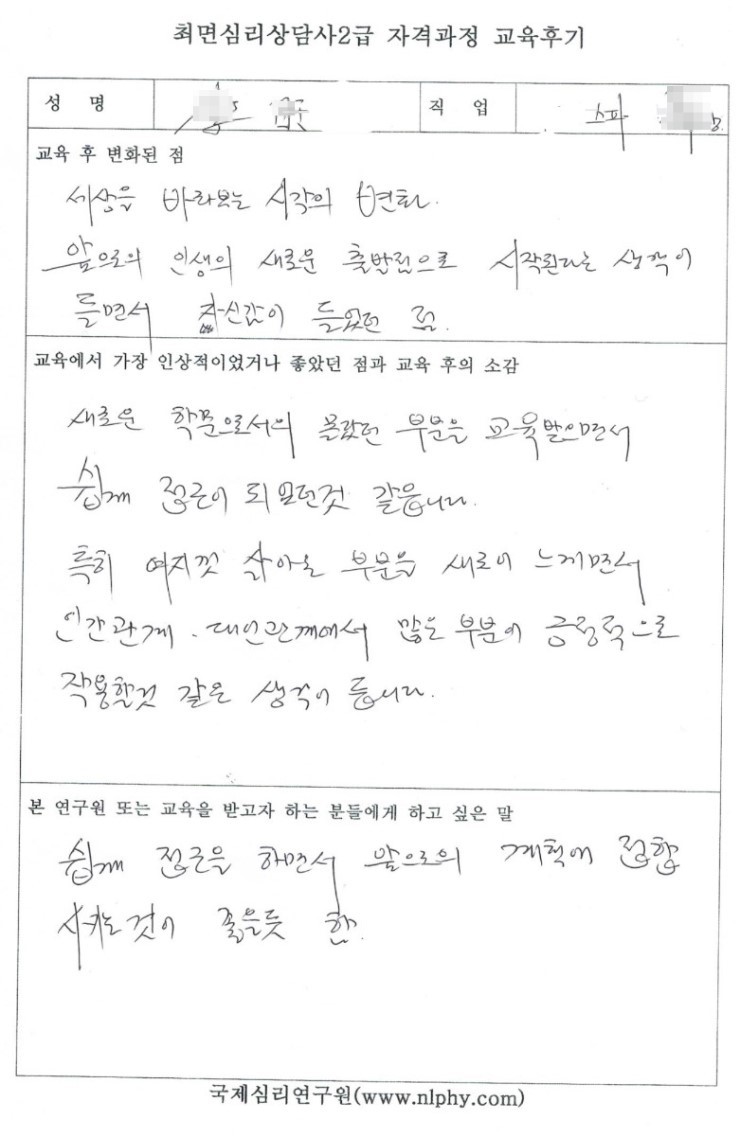 최면심리상담사2급 자격과정 교육후기
성 명 직 업 스파
교육 후 변화된 점
세상을 바라보는 시각의 변화.
앞으로의 인생의 새로운 출발점으로 시작된다는 생각이
들면서 자신감이 들었던 점.
교육에서 가장 인상적이었거나 좋았던 점과 교육 후의 소감
새로운 학문으로서의 몰랐던 부분을 교육받으면서
쉽게 접근이 되었던것 같습니다.
특히 여지껏 살아온 부분을 새로이 느끼면서
인간관계. 대인관계에서 많은 부분이 긍정적으로
작용할것 같은 생각이 듭니다.
본 연구원 또는 교육을 받고자 하는 분들에게 하고 싶은 말
쉽게 접근을 하면서 앞으로의 계획에 접합
시키는 것이 좋을듯 함.
국제심리연구원(www.nlphy.com)